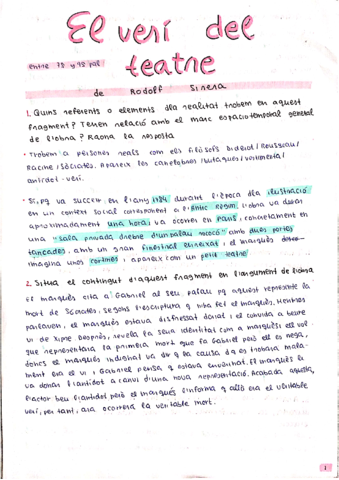 El verí del
entre 75 y 98 pal.
teatre
de Rodolf Sirera
1. Quins referents o elements dla realitat trobem en aquest
fragment? Tenen relació amb el marc espaciotemporal general
de l'obra? Raona la resposta
· Trobem a persones reals com els filòsofs Diderot / Rousseau /
Racine i Sòcrates. Apareix les canelobres / butaques / vorimenta /
antídot - verí.
· Sí, pq va succeir en l'any 1784 durant l'època dla il·lustració
en un context social corresponent a l'Antic règim. L'obra va durar
aproximadament una hora, va ocorrer en París, concretament en
una "sala privada d'rebre d'un palau rococó" amb dues portes
tancades, amb un gran finestral enreixat, el marqués
imagina unes cortines i apareix com un petit teatre
2. Situa el contingut d'aquest fragment en l'argument de l'obra
El marqués cita a Gabriel al seu palau pq aquest represente la
mort de Sòcrates, segons l'escriptura q ha fet el marqués. Mentres
parlaven, el marqués estava disfressat de criat i el convida a beure
vi de Xipre. Després, revela la seua identitat com a marqués i ell vol
que representara la primera mort que fa Gabriel però ell es nega,
doncs el marqués indignat va dir q la causa d q es trobara mala-
ment era el vi i Gabriel pensa q estava enverinat. El marqués li
va donar l'antídot a canvi d'una nova representació. Acabada aquesta,
l'actor beu l'antídot però el marqués l'informa q allò era el vertader
verí, per tant, ara ocorrerà la veritable mort.
1